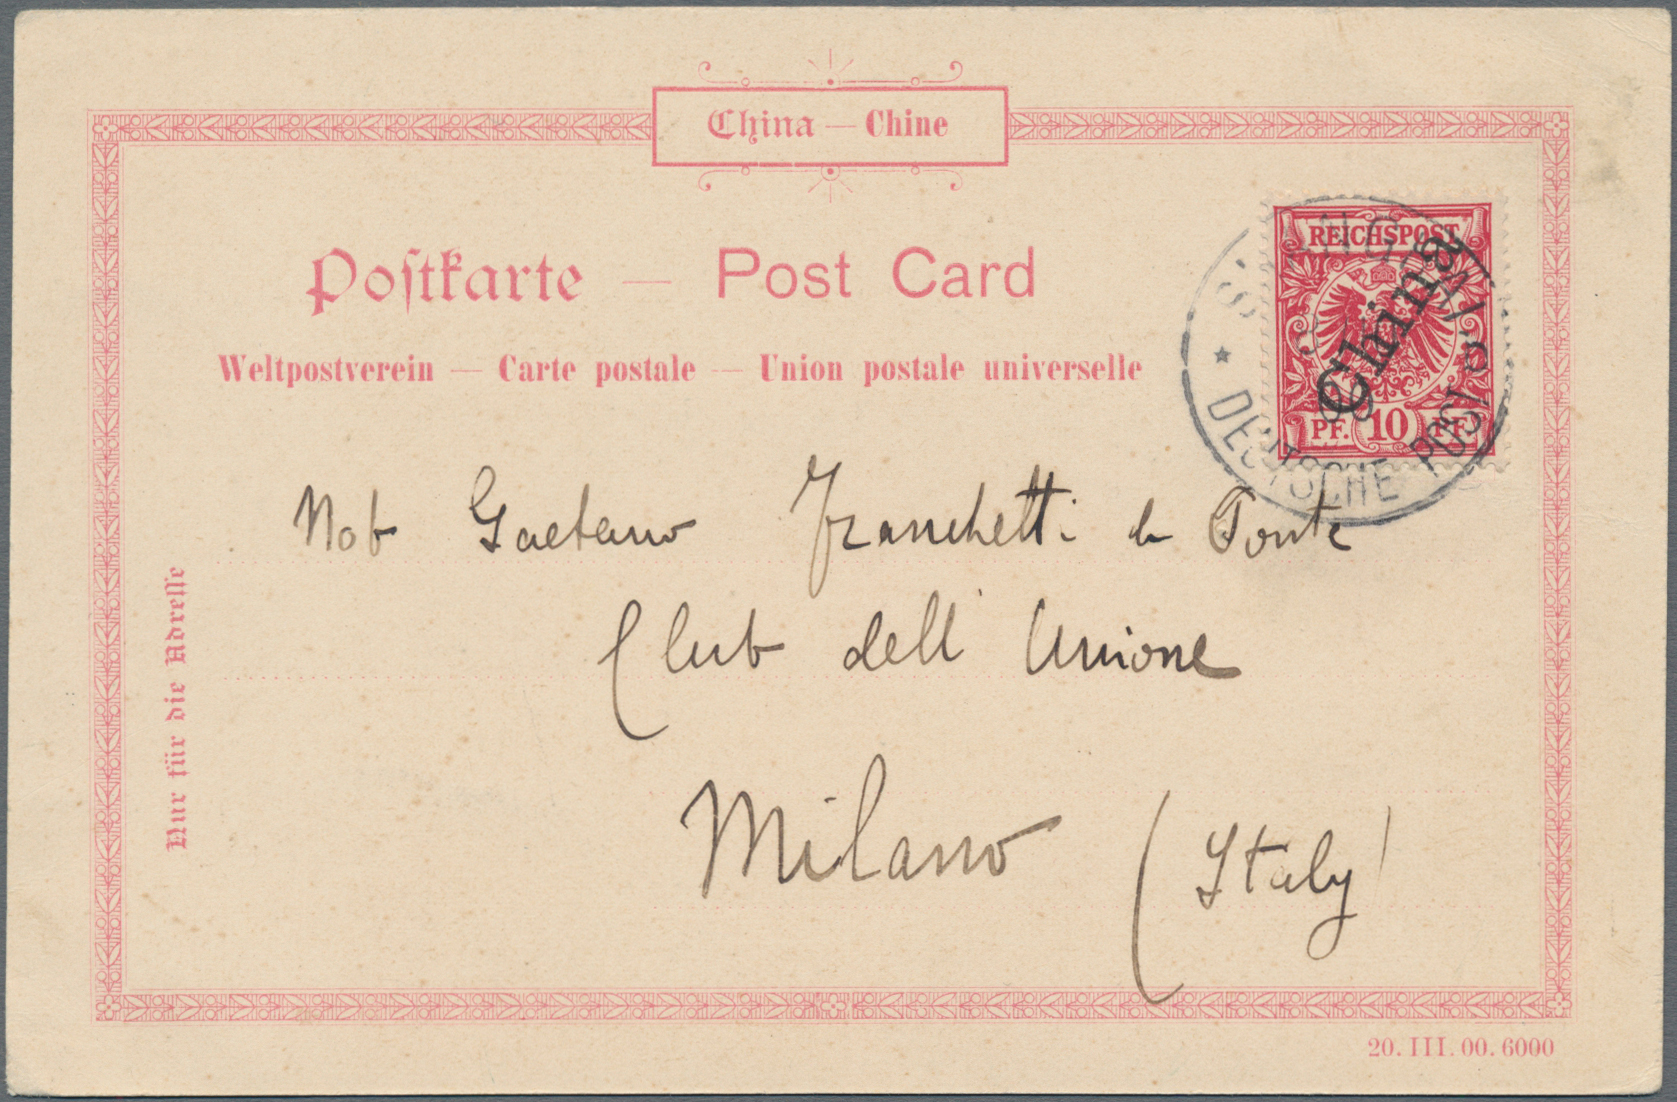 China — Chine
Postkarte — Post Card
Weltpostverein — Carte postale — Union postale universelle
REICHSPOST
China
PF. 10 PF.
SHANGHAI
DEUTSCHE POST
Nob Gaetano Franchetti de Ponte
Club dell' Unione
Milano (Italy)
Nur für die Adresse
20. III. 00. 6000